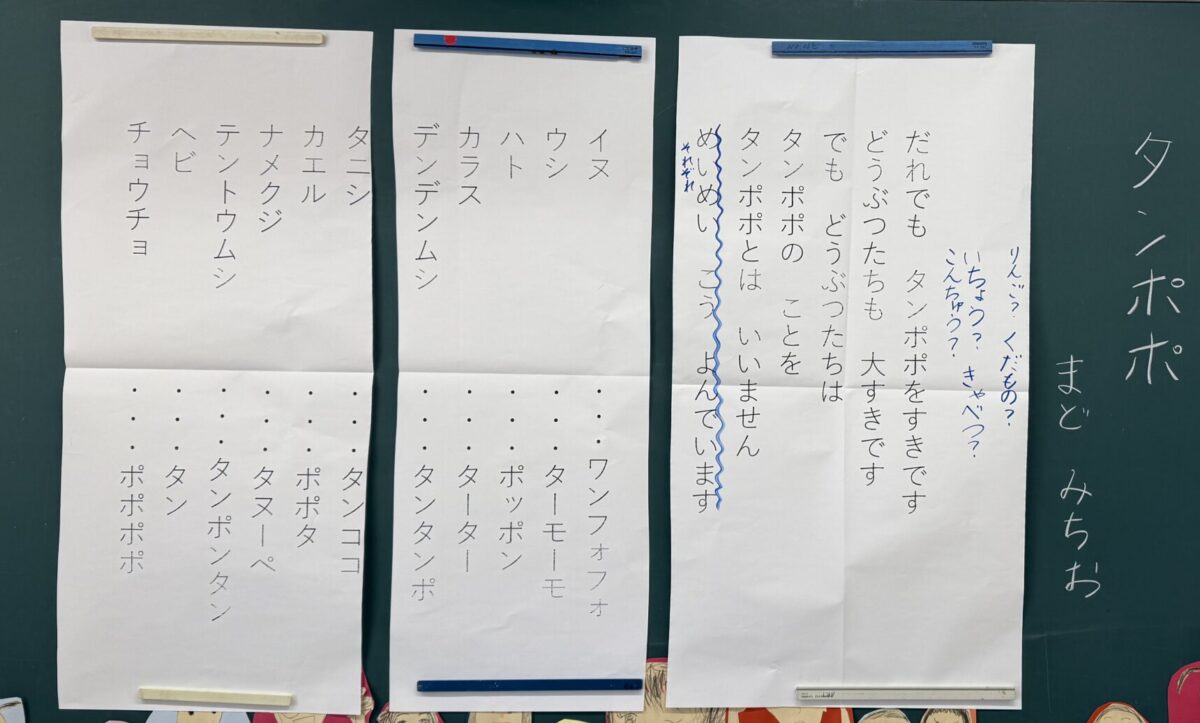 タンポポ
まど みちお
りんご？ くだもの？
いちょう？ きゃべつ？
こんちゅう？
だれでも タンポポをすきです
どうぶつたちも 大すきです
でも どうぶつたちは
タンポポの ことを
タンポポとは いいません
めいめい こう よんでいます
それぞれ
イヌ ・・・ワンフォフォ
ウシ ・・・ターモーモ
ハト ・・・ポッポン
カラス ・・・ターター
デンデンムシ ・・・タンタンポ
タニシ ・・・タンココ
カエル ・・・ポポタ
ナメクジ ・・・タヌーペ
テントウムシ ・・・タンポンタン
ヘビ ・・・タン
チョウチョ ・・・ポポポポ